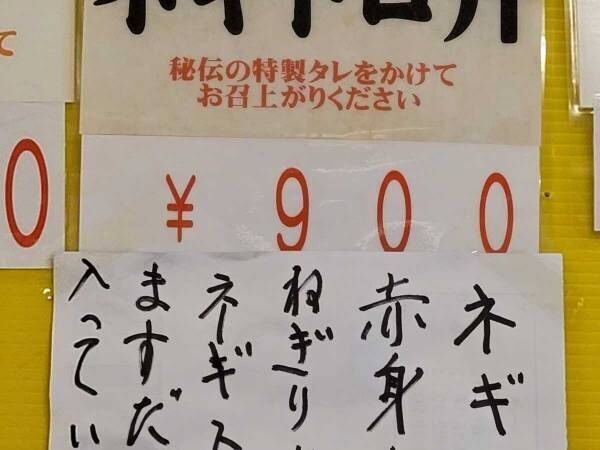 ネギトロ丼
秘伝の特製タレをかけて
お召上がりください
て
0
¥900
ネギ
赤身
ねぎり
ネギ
ますだ
入ってい